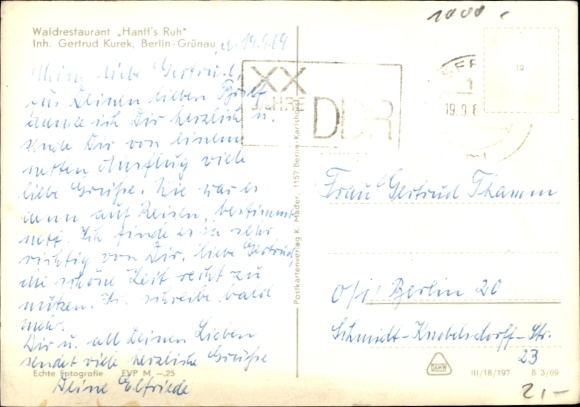 Waldrestaurant „Hanff's Ruh"
Inh. Gertrud Kurek, Berlin-Grünau
d. 19.9.69
Meine liebe Gertrud,
für Deinen lieben Brief
danke ich Dir herzlich u.
sende Dir von einem
netten Ausflug viele
liebe Grüße. Wie war es
denn auf Reisen, bestimmt
nett. Ich finde es so sehr
richtig von Dir, liebe Gertrud,
die schöne Zeit recht zu
nützen. Ich schreibe bald
mehr.
Dir u. all Deinen Lieben
sendet viele herzliche Grüße
Deine Elfriede
Echte Fotografie EVP M -.25
XX
JAHRE
DDR
19.9.6
Postkartenverlag K. Mader, 1157 Berlin-Karlshorst
Frau Gertrud Thamm
Berlin 20
Schmidt-Knobelsdorff-Str.
23
III/18/197 B 3/69
21,-